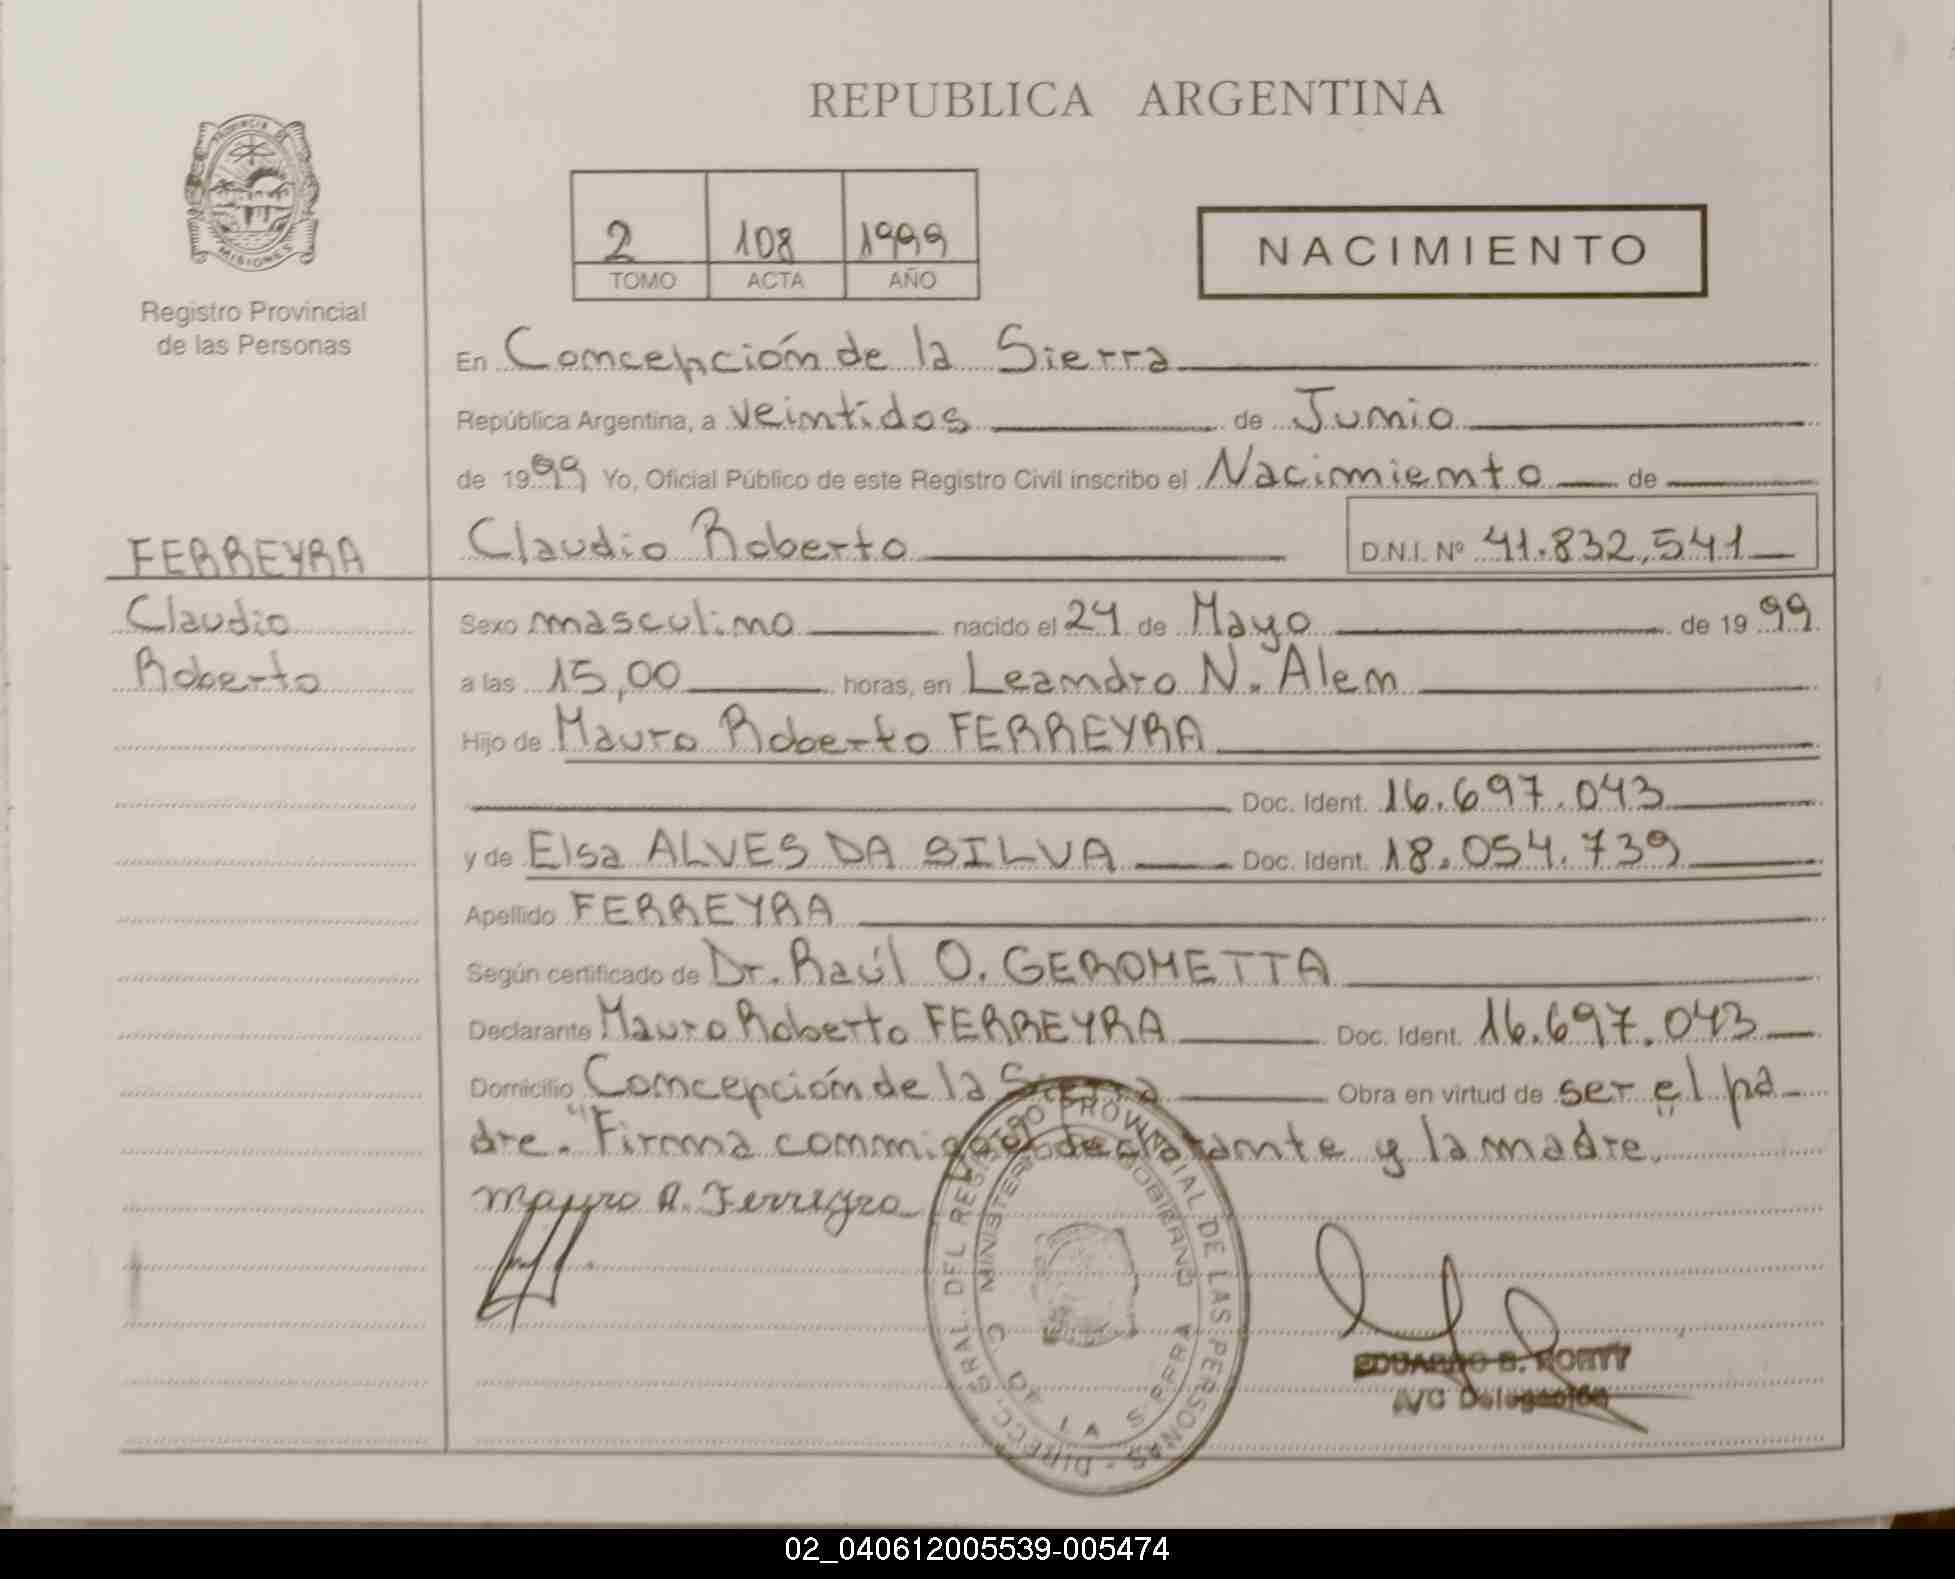 REPUBLICA ARGENTINA
PROVINCIA DE
MISIONES
Registro Provincial
de las Personas
2 108 1999
TOMO ACTA AÑO
NACIMIENTO
En Concepción de la Sierra
República Argentina, a veintidos de Junio
de 1999 Yo, Oficial Público de este Registro Civil inscribo el Nacimiento de
FERREYRA
Claudio
Roberto
Claudio Roberto D.N.I. Nº 41.832,541
Sexo masculino nacido el 24 de Mayo de 1999
a las 15,00 horas, en Leandro N. Alem
Hijo de Mauro Roberto FERREYRA
Doc. Ident. 16.697.043
y de Elsa ALVES DA SILVA Doc. Ident. 18.054.739
Apellido FERREYRA
Según certificado de Dr. Raúl O. GEROMETTA
Declarante Mauro Roberto FERREYRA Doc. Ident. 16.697.043
Domicilio Concepción de la Sierra Obra en virtud de ser el pa
dre. "Firma conmigo el declarante y la madre."
Mauro R. Ferreyra
DIRECC. GRAL. DEL REGISTRO PROVINCIAL DE LAS PERSONAS -
MINISTERIO GOBIERNO
LA SIERRA
EDUARDO B.
A/C Delegación
02_040612005539-005474